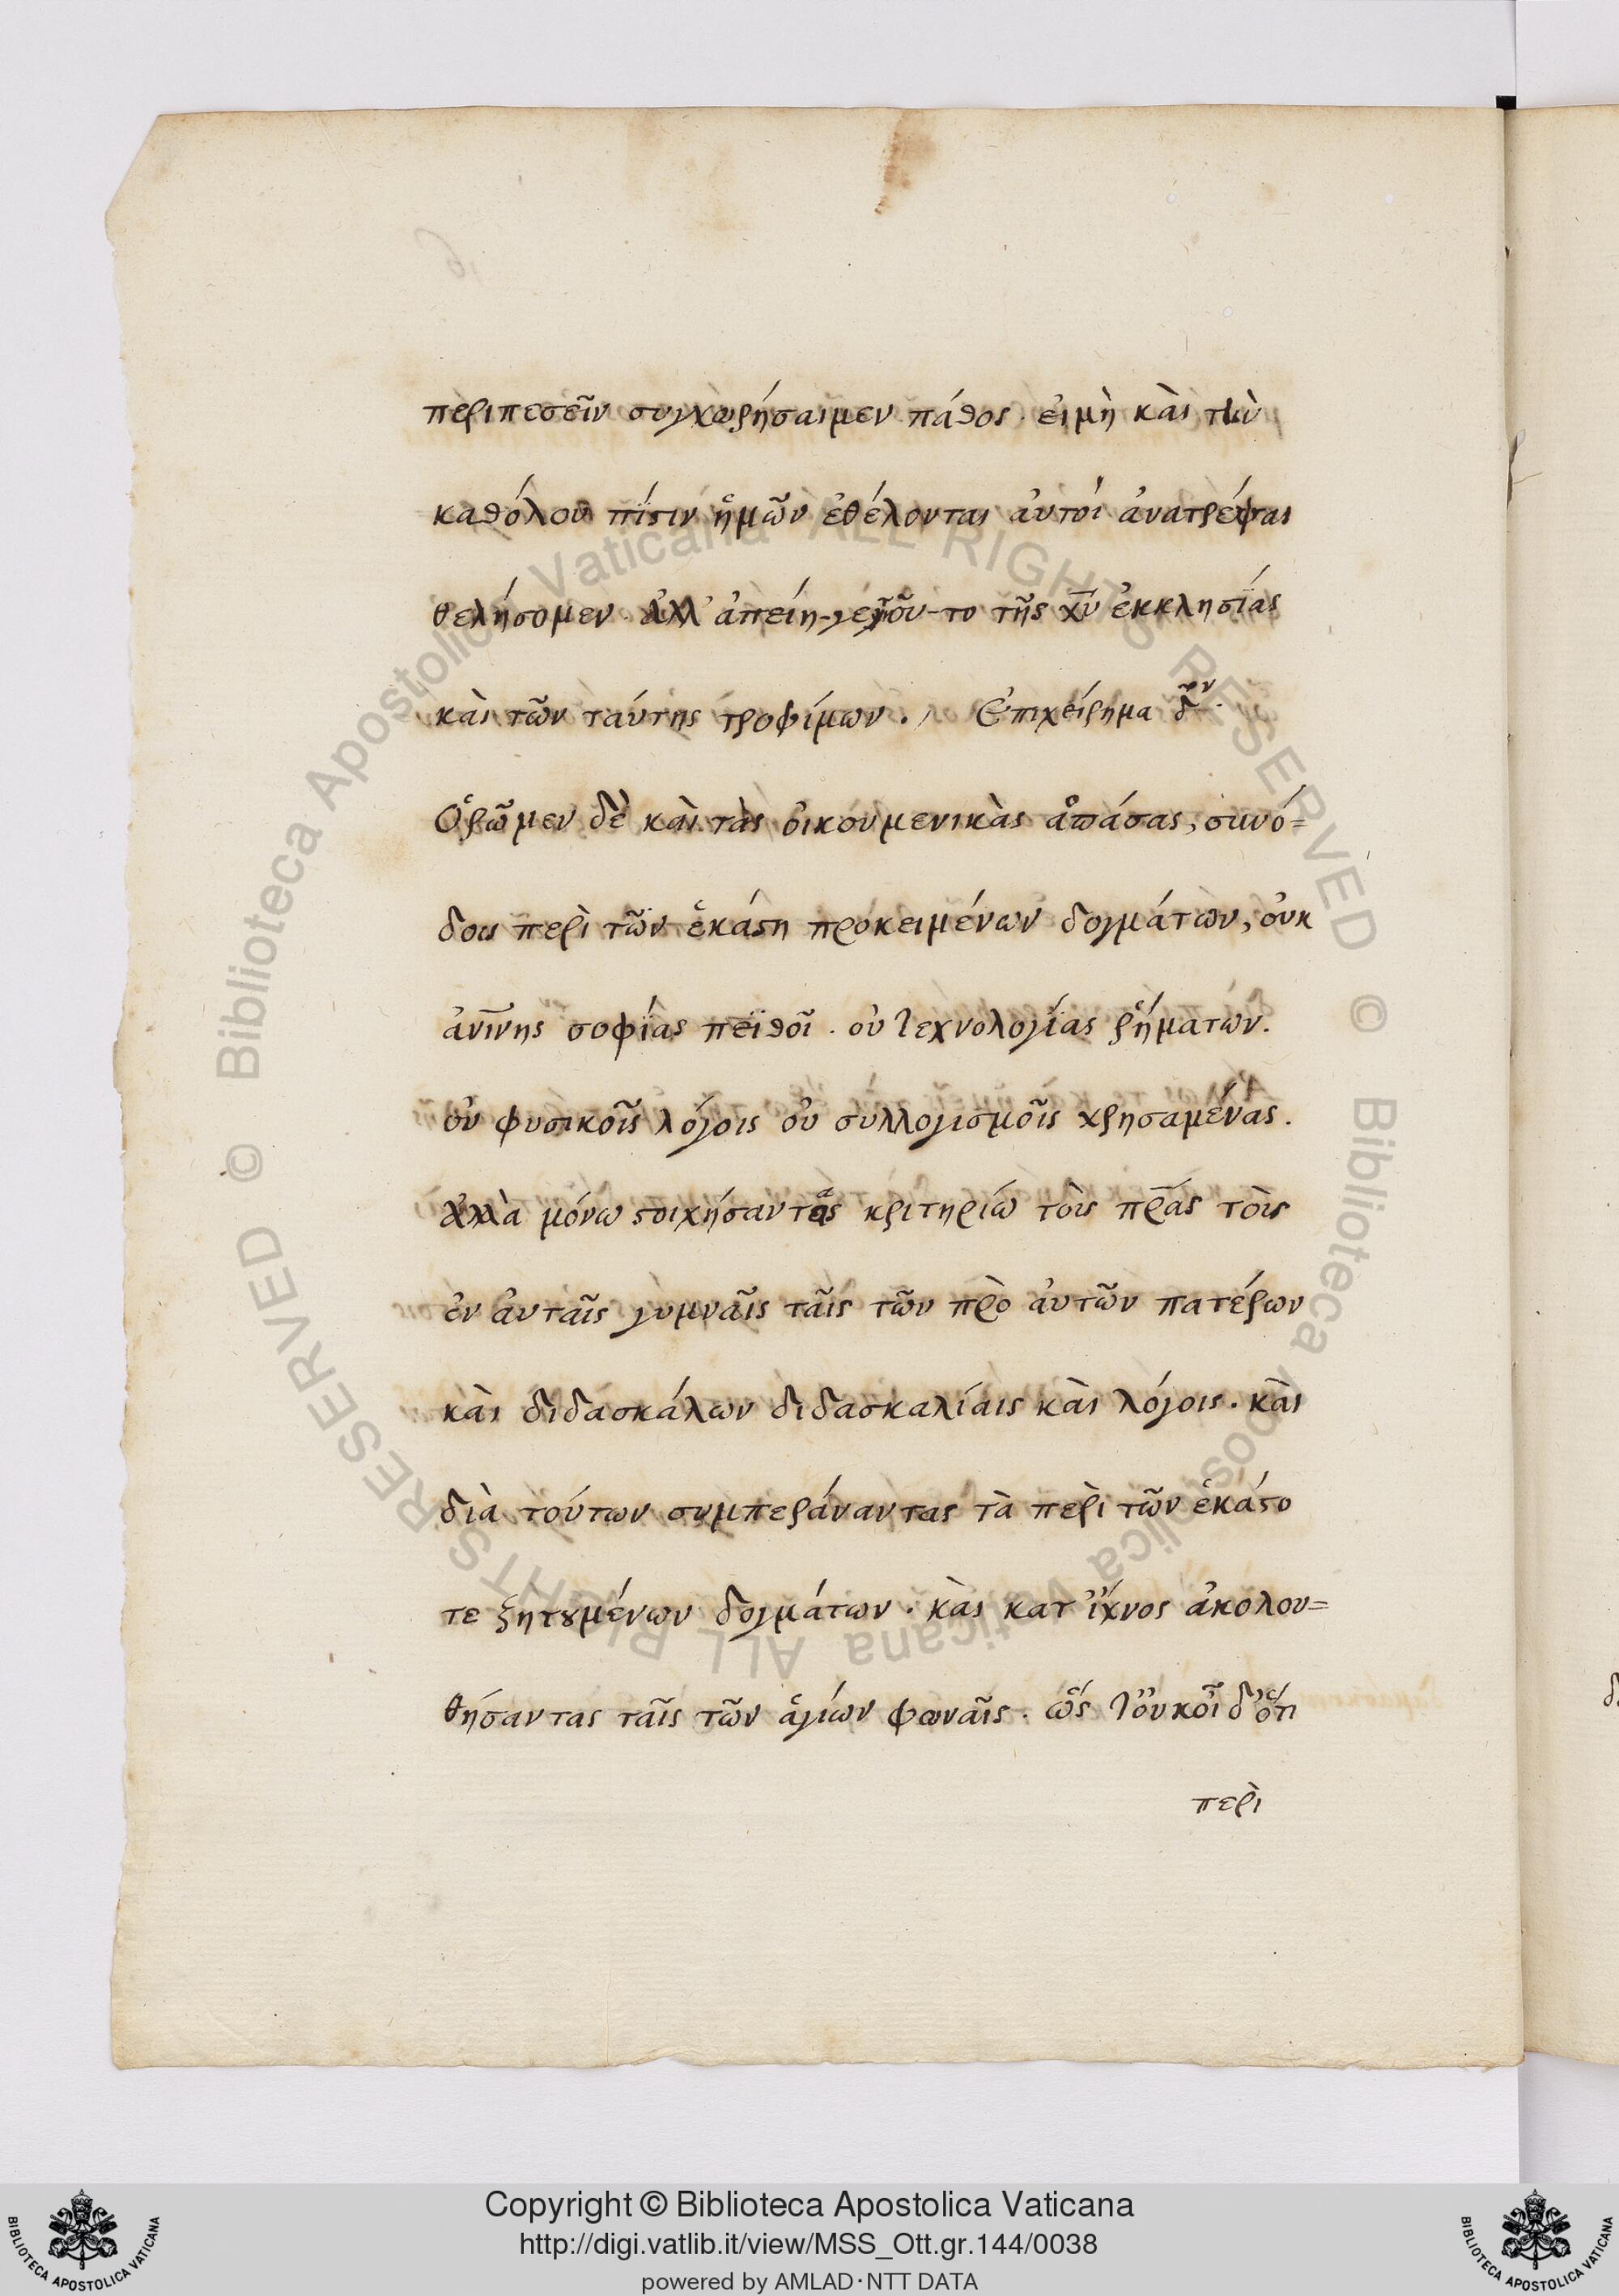 περιπεσεῖν συγχωρήσαιμεν πάθος. εἰμὴ καὶ τὴν
καθόλου πίστιν ἡμῶν ἐθέλονται αὐτοὶ ἀνατρέψαι
θελήσομεν. ἀλλ' ἀπείη-γε τοῦ-το τῆς χῡ ἐκκλησίας
καὶ τῶν ταύτης τροφίμων. Ἐπιχείρημα δ̄ον.
Ὁρῶμεν δὲ καὶ τὰς οἰκουμενικὰς ἁπάσας, συνό=
δους περὶ τῶν ἑκάστη προκειμένων δογμάτων, οὐκ
ἀν̄ινης σοφίας πειθοῖ. οὐ τεχνολογίας ῥήματων.
οὐ φυσικοῖς λόγοις οὐ συλλογισμοῖς χρησαμένας.
ἀλλὰ μόνω στοιχήσαντας κριτηρίω τοὺς πρ̄ας τοὺς
ἐν αὐταῖς γυμναῖς ταῖς τῶν πρὸ αὐτῶν πατέρων
καὶ διδασκάλων διδασκαλίαις καὶ λόγοις. καὶ
διὰ τούτων συμπεράναντας τὰ περὶ τῶν ἑκάστο
τε ζητουμένων δογμάτων. καὶ κατ' ἴχνος ἀκολου=
θήσαντας ταῖς τῶν ἁγίων φωναῖς. ὡς
περὶ
Copyright © Biblioteca Apostolica Vaticana
http://digi.vatlib.it/view/MSS_Ott.gr.144/0038
powered by AMLAD·NTT DATA
© Biblioteca Apostolica Vaticana ALL RIGHTS RESERVED
© Biblioteca Apostolica Vaticana ALL RIGHTS RESERVED
BIBLIOTECA APOSTOLICA VATICANA
BIBLIOTECA APOSTOLICA VATICANA